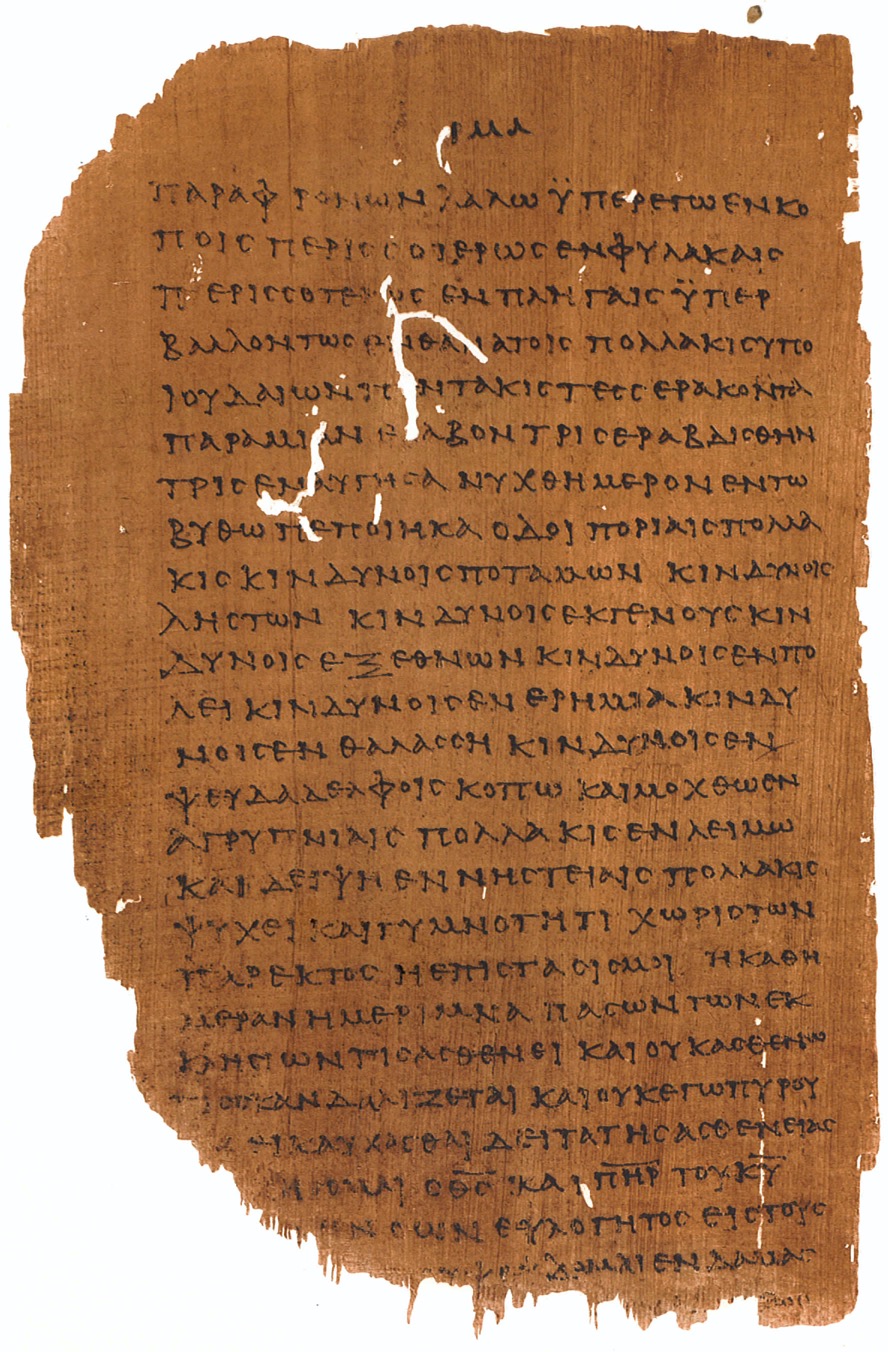 ΡΜΑ
ΠΑΡΑΦΡΟΝΩΝ ΛΑΛΩ ΫΠΕΡΕΓΩΕΝΚΟ
ΠΟΙΣ ΠΕΡΙΣΣΟΤΕΡΩΣΕΝΦΥΛΑΚΑΙΣ
ΠΕΡΙΣΣΟΤΕΡΩΣ ΕΝΠΛΗΓΑΙΣ ΫΠΕΡ
ΒΑΛΛΟΝΤΩΣ ΕΝΘΑΝΑΤΟΙΣ ΠΟΛΛΑΚΙΣΥΠΟ
ΙΟΥΔΑΙΩΝΠΕΝΤΑΚΙΣΤΕΣΣΕΡΑΚΟΝΤΑ
ΠΑΡΑΜΙΑΝ ΕΛΑΒΟΝ ΤΡΙΣΕΡΑΒΔΙΣΘΗΝ
ΤΡΙΣΕΝΑΥΓΗΣΑ ΝΥΧΘΗΜΕΡΟΝ ΕΝΤΩ
ΒΥΘΩ ΠΕΠΟΙΗΚΑ ΟΔΟΙΠΟΡΙΑΙΣΠΟΛΛΑ
ΚΙΣ ΚΙΝΔΥΝΟΙΣΠΟΤΑΜΩΝ ΚΙΝΔΥΝΟΙΣ
ΛΗΣΤΩΝ ΚΙΝΔΥΝΟΙΣΕΚΓΕΝΟΥΣΚΙΝ
ΔΥΝΟΙΣΕΞΕΘΝΩΝ ΚΙΝΔΥΝΟΙΣΕΝΠΟ
ΛΕΙ ΚΙΝΔΥΝΟΙΣΕΝ ΕΡΗΜΙΑ ΚΙΝΔΥ
ΝΟΙΣΕΝ ΘΑΛΑΣΣΗ ΚΙΝΔΥΝΟΙΣΕΝ
ΨΕΥΔΑΔΕΛΦΟΙΣ ΚΟΠΩ ΚΑΙΜΟΧΘΩΕΝ
ΑΓΡΥΠΝΙΑΙΣ ΠΟΛΛΑΚΙΣΕΝΛΕΙΜΩ
ΚΑΙ ΔΕΙΨΗ ΕΝ ΝΗΣΤΕΙΑΙΣ ΠΟΛΛΑΚΙΣ
ΨΥΧΕΙ ΚΑΙΓΥΜΝΟΤΗΤΙ ΧΩΡΙΣΤΩΝ
ΠΑΡΕΚΤΟΣ ΗΕΠΙΣΤΑΣΙΣΜΟΙ ΗΚΑΘΗ
ΜΕΡΑΝ ΗΜΕΡΙΜΝΑ ΠΑΣΩΝ ΤΩΝΕΚ
ΚΛΗΣΙΩΝ ΤΙΣΑΣΘΕΝΕΙ ΚΑΙΟΥΚΑΣΘΕΝΩ
ΤΙΣΣΚΑΝΔΑΛΙΖΕΤΑΙ ΚΑΙΟΥΚΕΓΩΠΥΡΟΥ
ΚΑΥΧΑΣΘΑΙ ΔΕΙΤΑΤΗΣΑΣΘΕΝΕΙΑΣ
ΗΣΟΜΑΙ ΟΘ̅Σ̅ ΚΑΙ Π̅Η̅Ρ̅ ΤΟΥΚ̅Υ̅
ΟΩΝ ΕΥΛΟΓΗΤΟΣ ΕΙΣΤΟΥΣ
ΔΟΜΑΙΕΝΔΑΜΑΣ